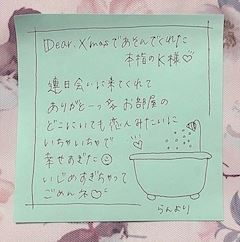 Dear. X'masであそんでくれた
本指のK様♡
連日会いに来てくれて
ありがとーっ お部屋の
どこにいても恋人みたいに
いちゃいちゃで
幸せすぎた☺
いじめすぎちゃって
ごめんネ♡
らんより